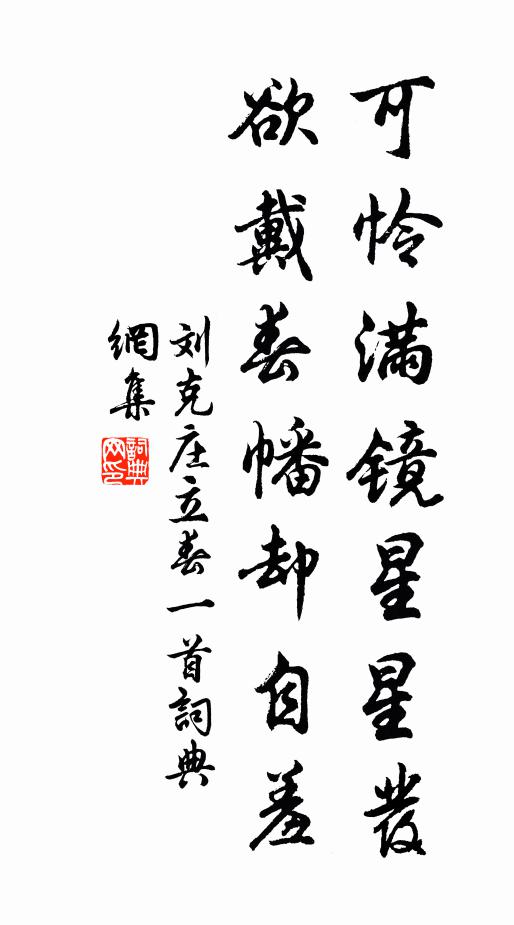 可怜满镜星星发
欲戴春幡却自羞
刘克庄立春一首词典
網集
詞典网印